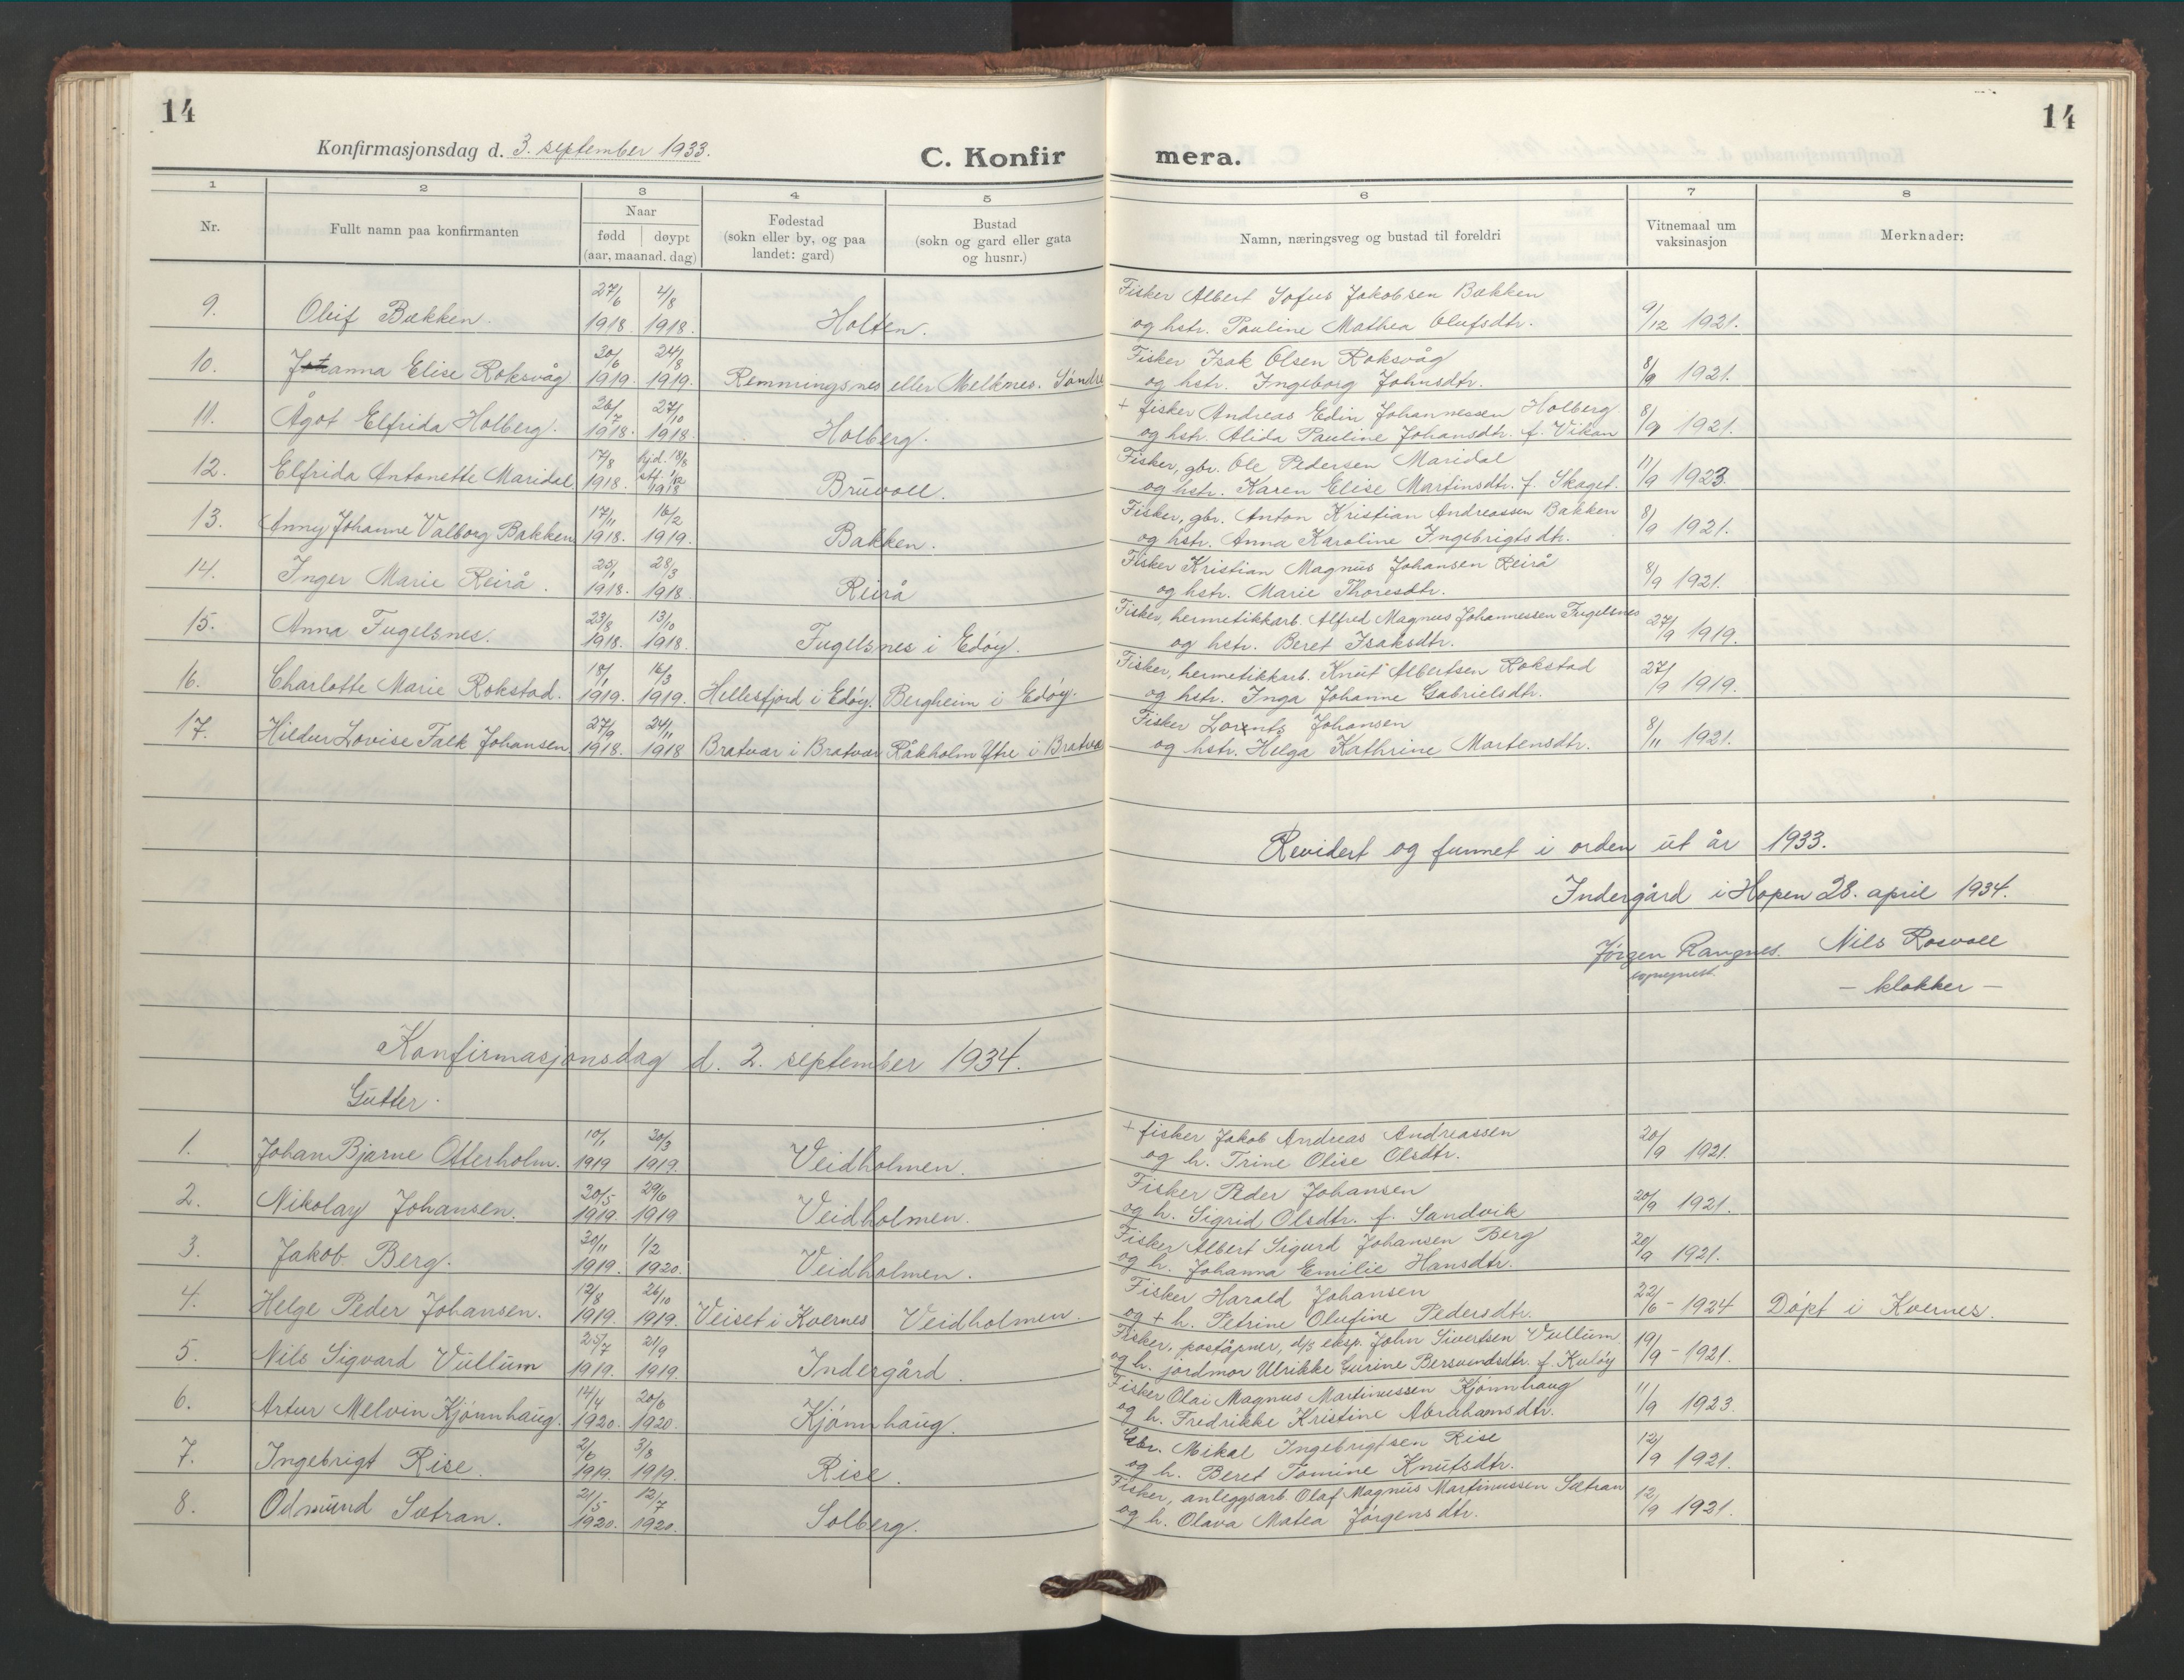 14
14
Konfirmasjonsdag d. 3. september 1933.
C. Konfir mera.
1 2 3 4 5 6 7 8
Nr. Fullt namn paa konfirmanten Naar fødd døypt (aar, maanad. dag) Fødestad (sokn eller by, og paa landet: gard) Bustad (sokn og gard eller gata og husnr.) Namn, næringsveg og bustad til foreldri Vitnemaal um vaksinasjon Merknader:
9. Oleif Bækken. 27/6 1918. 4/8 1918. Holten. Fisker Albert Sofus Jakobsen Bækken
og hstr. Pauline Mathea Olufsdtr. 9/12 1921.
10. Johanna Elise Roksvåg 30/6 1919. 24/8 1919. Remmringsnes eller Melknes. Søndre Fisker Isak Olsen Roksvåg
og hstr. Ingeborg Johnsdtr. 8/9 1921.
11. Ågot Elfrida Holberg. 26/7 1918. 27/10 1918. Holberg. + fisker Andreas Edin Johannessen Holberg
og hstr. Alida Pauline Johansdtr. f. Vikan 8/9 1921.
12. Elfrida Antonette Maridal 17/8 1918. hjd. 18/8 stf. 1/12 1918 Bruvoll. Fisker, gbr. Ole Pedersen Maridal
og hstr. Karen Elise Martinsdtr. f. Skaget. 11/9 1923.
13. Anny Johanne Valborg Bakken 17/11 1918. 16/2 1919. Bakken. Fisker, gbr. Anton Kristian Andreassen Bakken
og hstr. Anna Karoline Ingebrigtsdtr. 8/9 1921.
14. Inger Marie Reirå. 25/1 1918. 28/3 1918. Reirå Fisker Kristian Magnus Johansen Reirå
og hstr. Marie Thoresdtr. 8/9 1921.
15. Anna Fugelsnes. 23/8 1918. 13/10 1918. Fugelsnes i Edøy. Fisker, hermetikkarb. Alfred Magnus Johannessen Fugelsnes
og hstr. Beret Isaksdtr. 27/9 1919.
16. Charlotte Marie Rokstad. 18/1 1919. 16/3 1919. Hellesfjord i Edøy. Bergheim i Edøy. Fisker, hermetikkarb. Knut Albertsen Rokstad
og hstr. Inga Johanne Gabrielsdtr. 27/9 1919.
17. Hildur Lovise Falk Johansen 27/9 1918. 24/11 1918 Bratvær i Bratvær Råkholm Ytre i Bratvæ Fisker Lorents Johansen
og hstr. Helga Kathrine Martensdtr. 8/11 1921.
Revidert og funnet i orden ut år 1933.
Indergård i Hopen 28. april 1934.
Jørgen Rangnes. Nils Rosvoll
sogneprest. - klokker -
Konfirmasjonsdag d. 2. september 1934.
Gutter.
1. Johan Bjarne Otterholm. 10/1 1919 30/3 1919. Veidholmen. + fisker Jakob Andreas Andreassen
og h. Trine Olise Olsdtr. 20/9 1921.
2. Nikolay Johansen. 30/5 1919. 29/6 1919 Veidholmen. Fisker Peder Johansen
og h. Sigrid Olsdtr. f. Sandvik 20/9 1921.
3. Jakob Berg. 30/11 1919. 1/2 1920. Veidholmen. Fisker Albert Sigurd Johansen Berg
og h. Johanna Emilie Hansdtr. 20/9 1921.
4. Helge Peder Johansen. 12/8 1919. 26/10 1919. Veiset i Kvernes Veidholmen. Fisker Harald Johansen
og + h. Petrine Olufine Pedersdtr. 22/6 - 1924 Døpt i Kvernes.
5. Nils Sigvard Vullum 25/7 1919. 21/9 1919. Indergård. Fisker, poståpner, d/s eksp. John Sivertsen Vullum
og h. jordmor Ulrikke Gurine Bersvendsdtr. f. Kuløy 19/9 - 1921.
6. Artur Melvin Kjønnhaug. 14/4 1920. 20/6 1920. Kjønnhaug. Fisker Olai Magnus Martinussen Kjønnhaug
og h. Fredrikke Kristine Abrahamsdtr. 11/9 1923.
7. Ingebrigt Rise. 2/6 1919. 3/8 1919. Rise. Gbr. Mikal Ingebrigtsen Rise
og h. Beret Tomine Knutsdtr. 12/9 1921.
8. Odmund Sætran. 21/5 1920. 12/7 1920. Solberg. Fisker, anleggsarb. Olaf Magnus Martinussen Sætran
og h. Olava Matea Jørgensdtr. 12/9 1921.